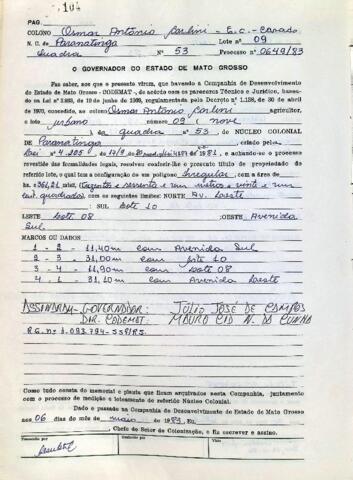 PAG. 104
COLONO Osmar Antônio Carlini - E.C. - Casado
N. C. de Paranatinga Lote nº 09
Quadra Nº 53 Processo nº 0649/83
O GOVERNADOR DO ESTADO DE MATO GROSSO
Faz saber, aos que o presente virem, que havendo a Companhia de Desenvolvimento
do Estado de Mato Grosso - CODEMAT -, de acordo com os pareceres Técnico e Jurídico, baseados
na Lei 3.893, de 19 de junho de 1939, regulamentada pelo Decreto n° 1.138, de 30 de abril
de 1970, concedido ao colono Osmar Antônio Carlini agricultor,
e lote urbano número 09 (nove
) a quadra nº 53, DE NÚCLEO COLONIAL
DE Paranatinga criado pela
Lei 4.205 de 1981, e achando-se o processo
revestido das formalidades legais, resolveu conferir-lhe o presente título de propriedade do
referido lote, o qual tem a configuração de um polígono irregular, com a área de
hs 361,21 mts2, (trezentos e sessenta e um metros e vinte e um
cent. quadrados com os seguintes limites: NORTE Av. Leste
: SUL Lote 10
LESTE Lote 08 :OESTE Avenida
Sul
MARCOS OU DADOS
1 - 2 - 11,40m com Avenida Sul
2 - 3 - 31,00m com lote 10
3 - 4 - 11,90m com Lote 08
4 - 1 - 31,10m com Avenida Leste
ASSINARAM - GOVERNADOR: JÚLIO JOSÉ DE CAMPOS
DIR. CODEMAT: MAURO CID N. DA CUNHA
R.G. nº 1.093.794-SSP/RS.
Tudo como consta do memorial e planta que ficam arquivados nesta Companhia, juntamente
com o processo de medição e loteamento do referido Núcleo Colonial.
Dado e passado na Companhia de Desenvolvimento do Estado de Mato Grosso
aos 06 dias do mês de maio de 1985. Eu
, Chefe do Setor de Colonização, o Fiz escrever e assino.
Transcrito por Conferido por Visto